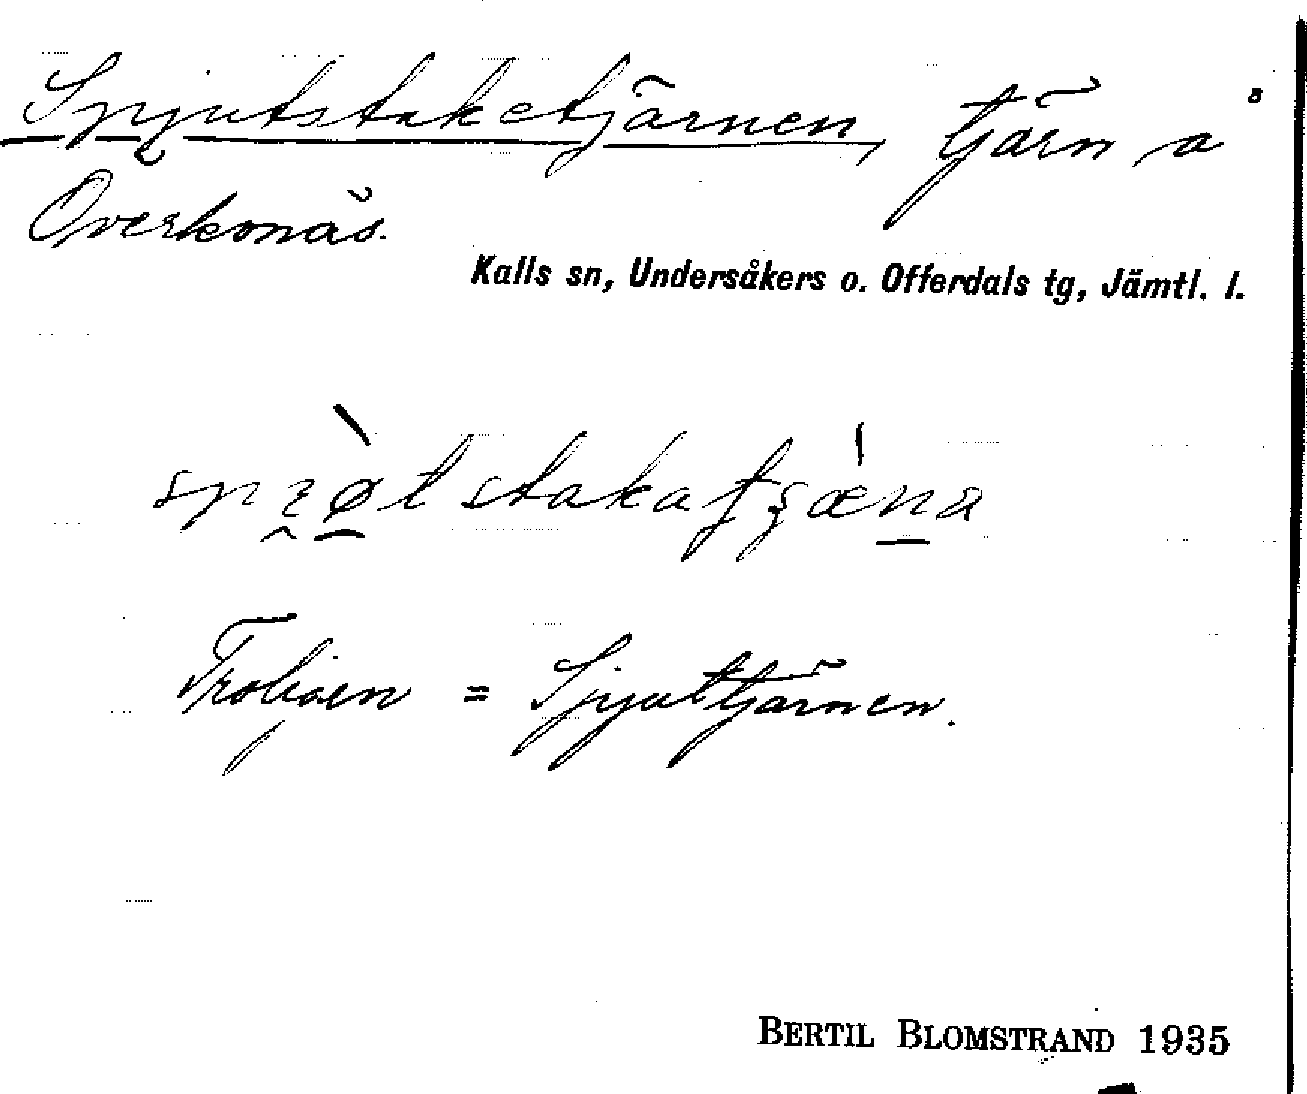 Spjutstaketjärnen, tjärn å
Överkonäs.
Kalls sn, Undersåkers o. Offerdals tg, Jämtl. l.
= Spjuttjärnen.
BERTIL BLOMSTRAND 1935